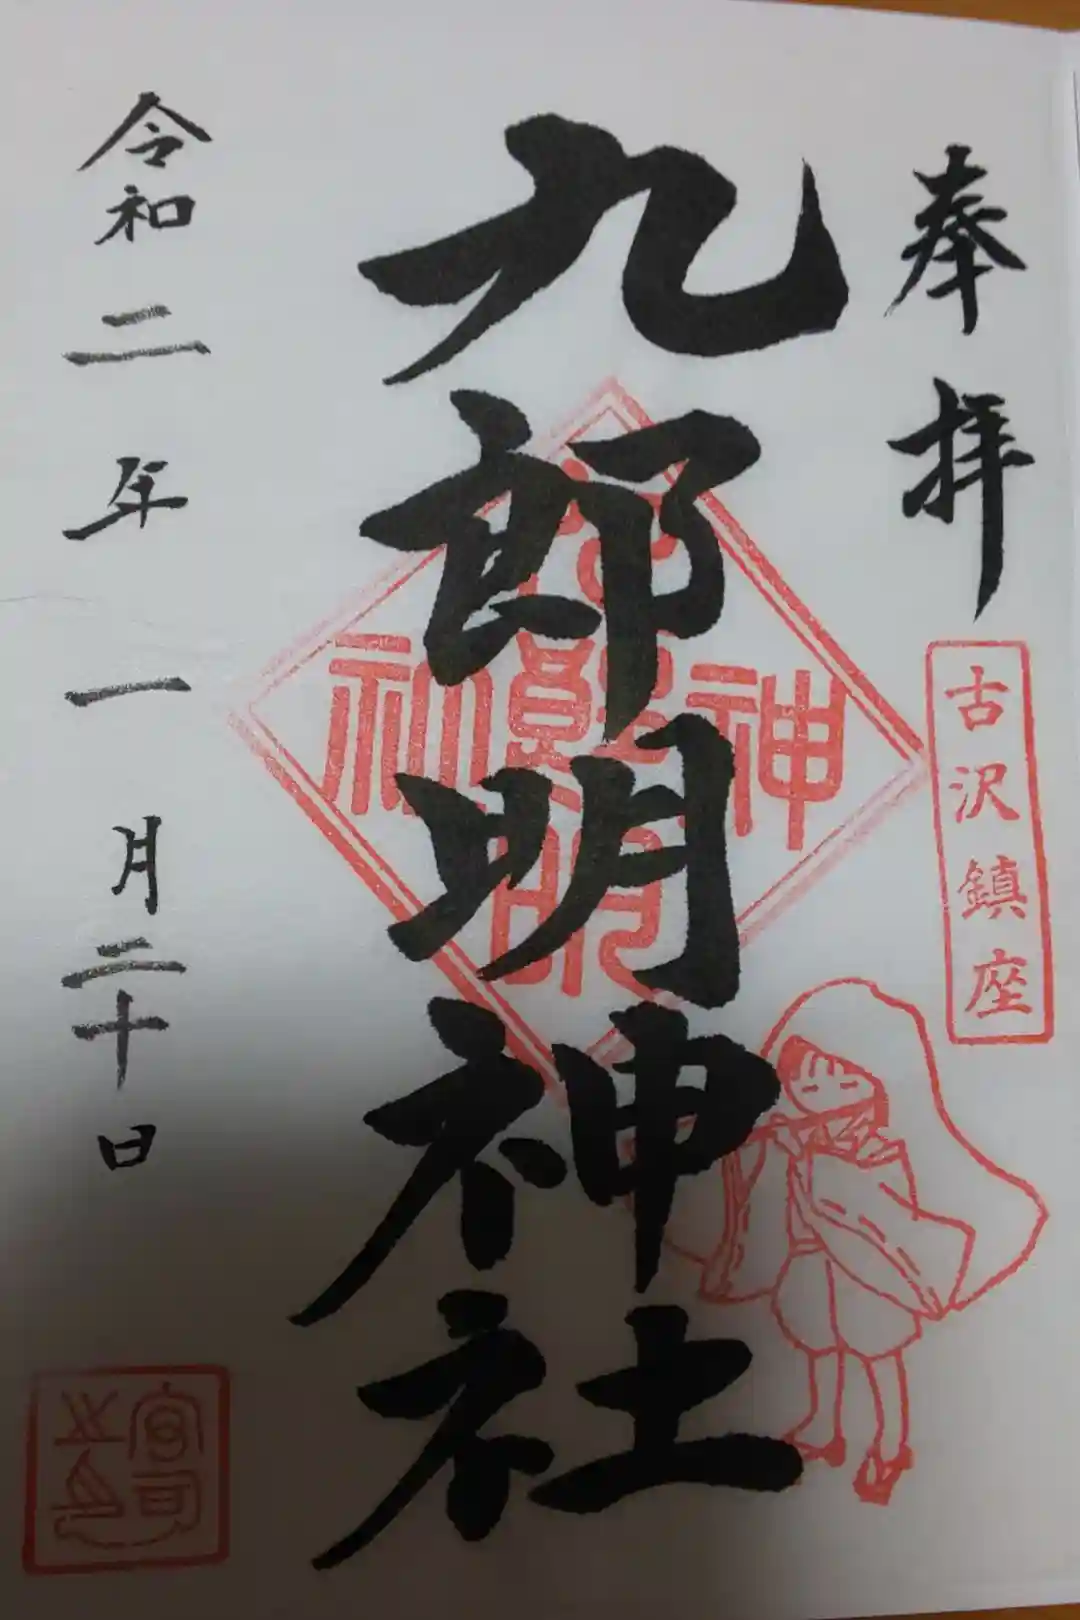 奉拝
古沢鎮座
九郎明神社
令和二年一月二十日
宮司